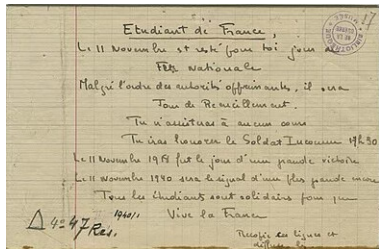 Etudiant de France,
Le 11 Novembre est resté pour toi jour de
Fête Nationale
Malgré l'ordre des autorités opprimantes, il sera
Jour de Recueillement.
Tu n'assisteras à aucun cours
Tu iras honorer le Soldat Inconnu 17h30
Le 11 Novembre 1918 fut le jour d'une grande victoire
Le 11 Novembre 1940 sera le signal d'une plus grande encore
Tous les étudiants sont solidaires pour que
Vive la France
Recopie ces lignes et
diffuse les
4° 47
Rés.
1940/1